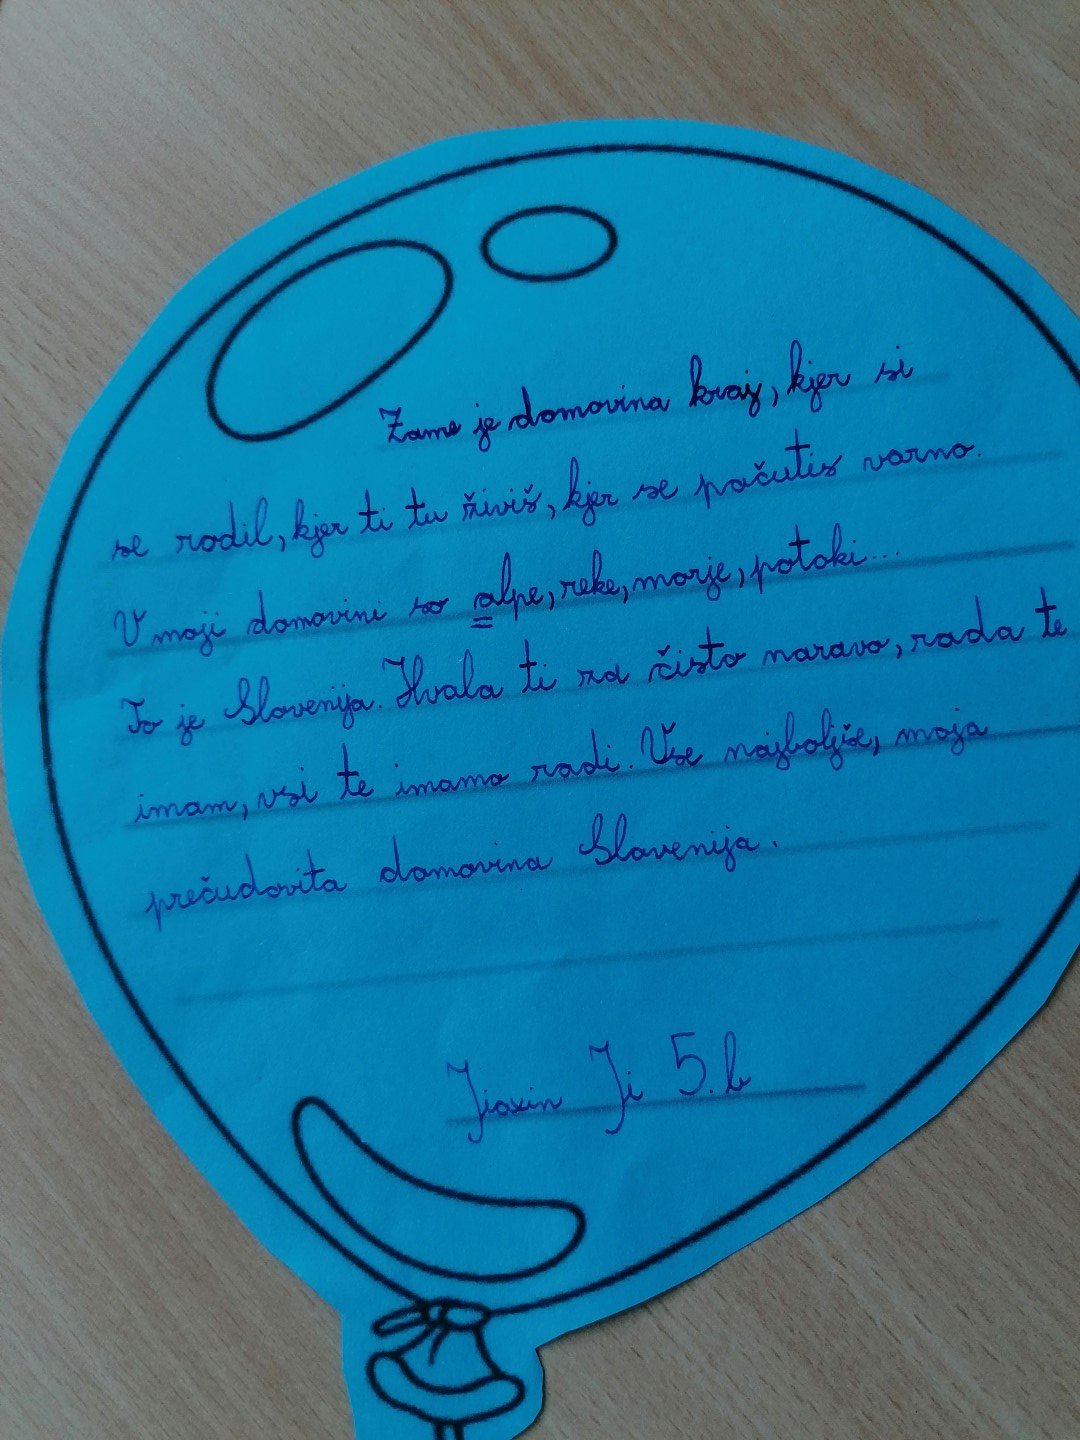 Zame je domovina kraj, kjer si
se rodil, kjer ti tu živiš, kjer se počutis varno.
V moji domovini so alpe, reke, morje, potoki...
To je Slovenija. Hvala ti za čisto naravo, rada te
imam, vsi te imamo radi. Vse najboljše, moja
prečudovita domovina Slovenija.
Jiaxin Ji 5. b